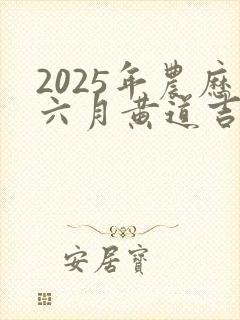 2025年農歷
六月黄道吉
安居寶